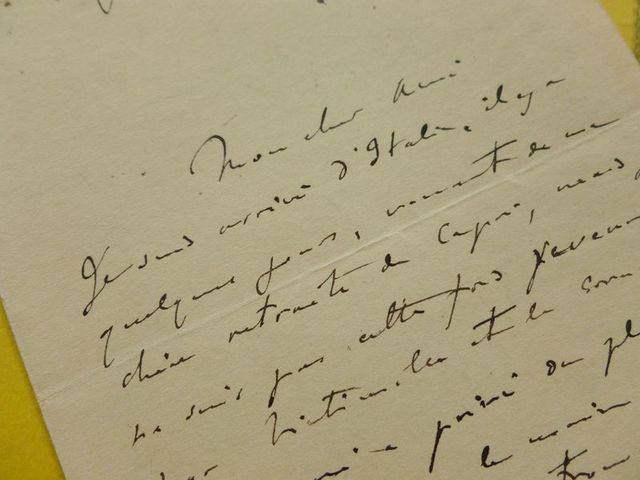 Mon cher Ami
Je suis arrivé d'Italie, il y a
quelques jours, venant de ma
chère retraite de Capri, mais je
ne suis pas cette fois revenu
et le
privé du pl
le
trou